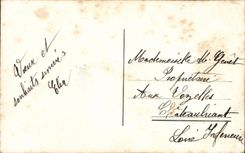 Vœux et
souhaits sincères
Mademoiselle M. Genêt
Propriétaire
Aux Vozelles
Châteaubriant
Loire Inférieure